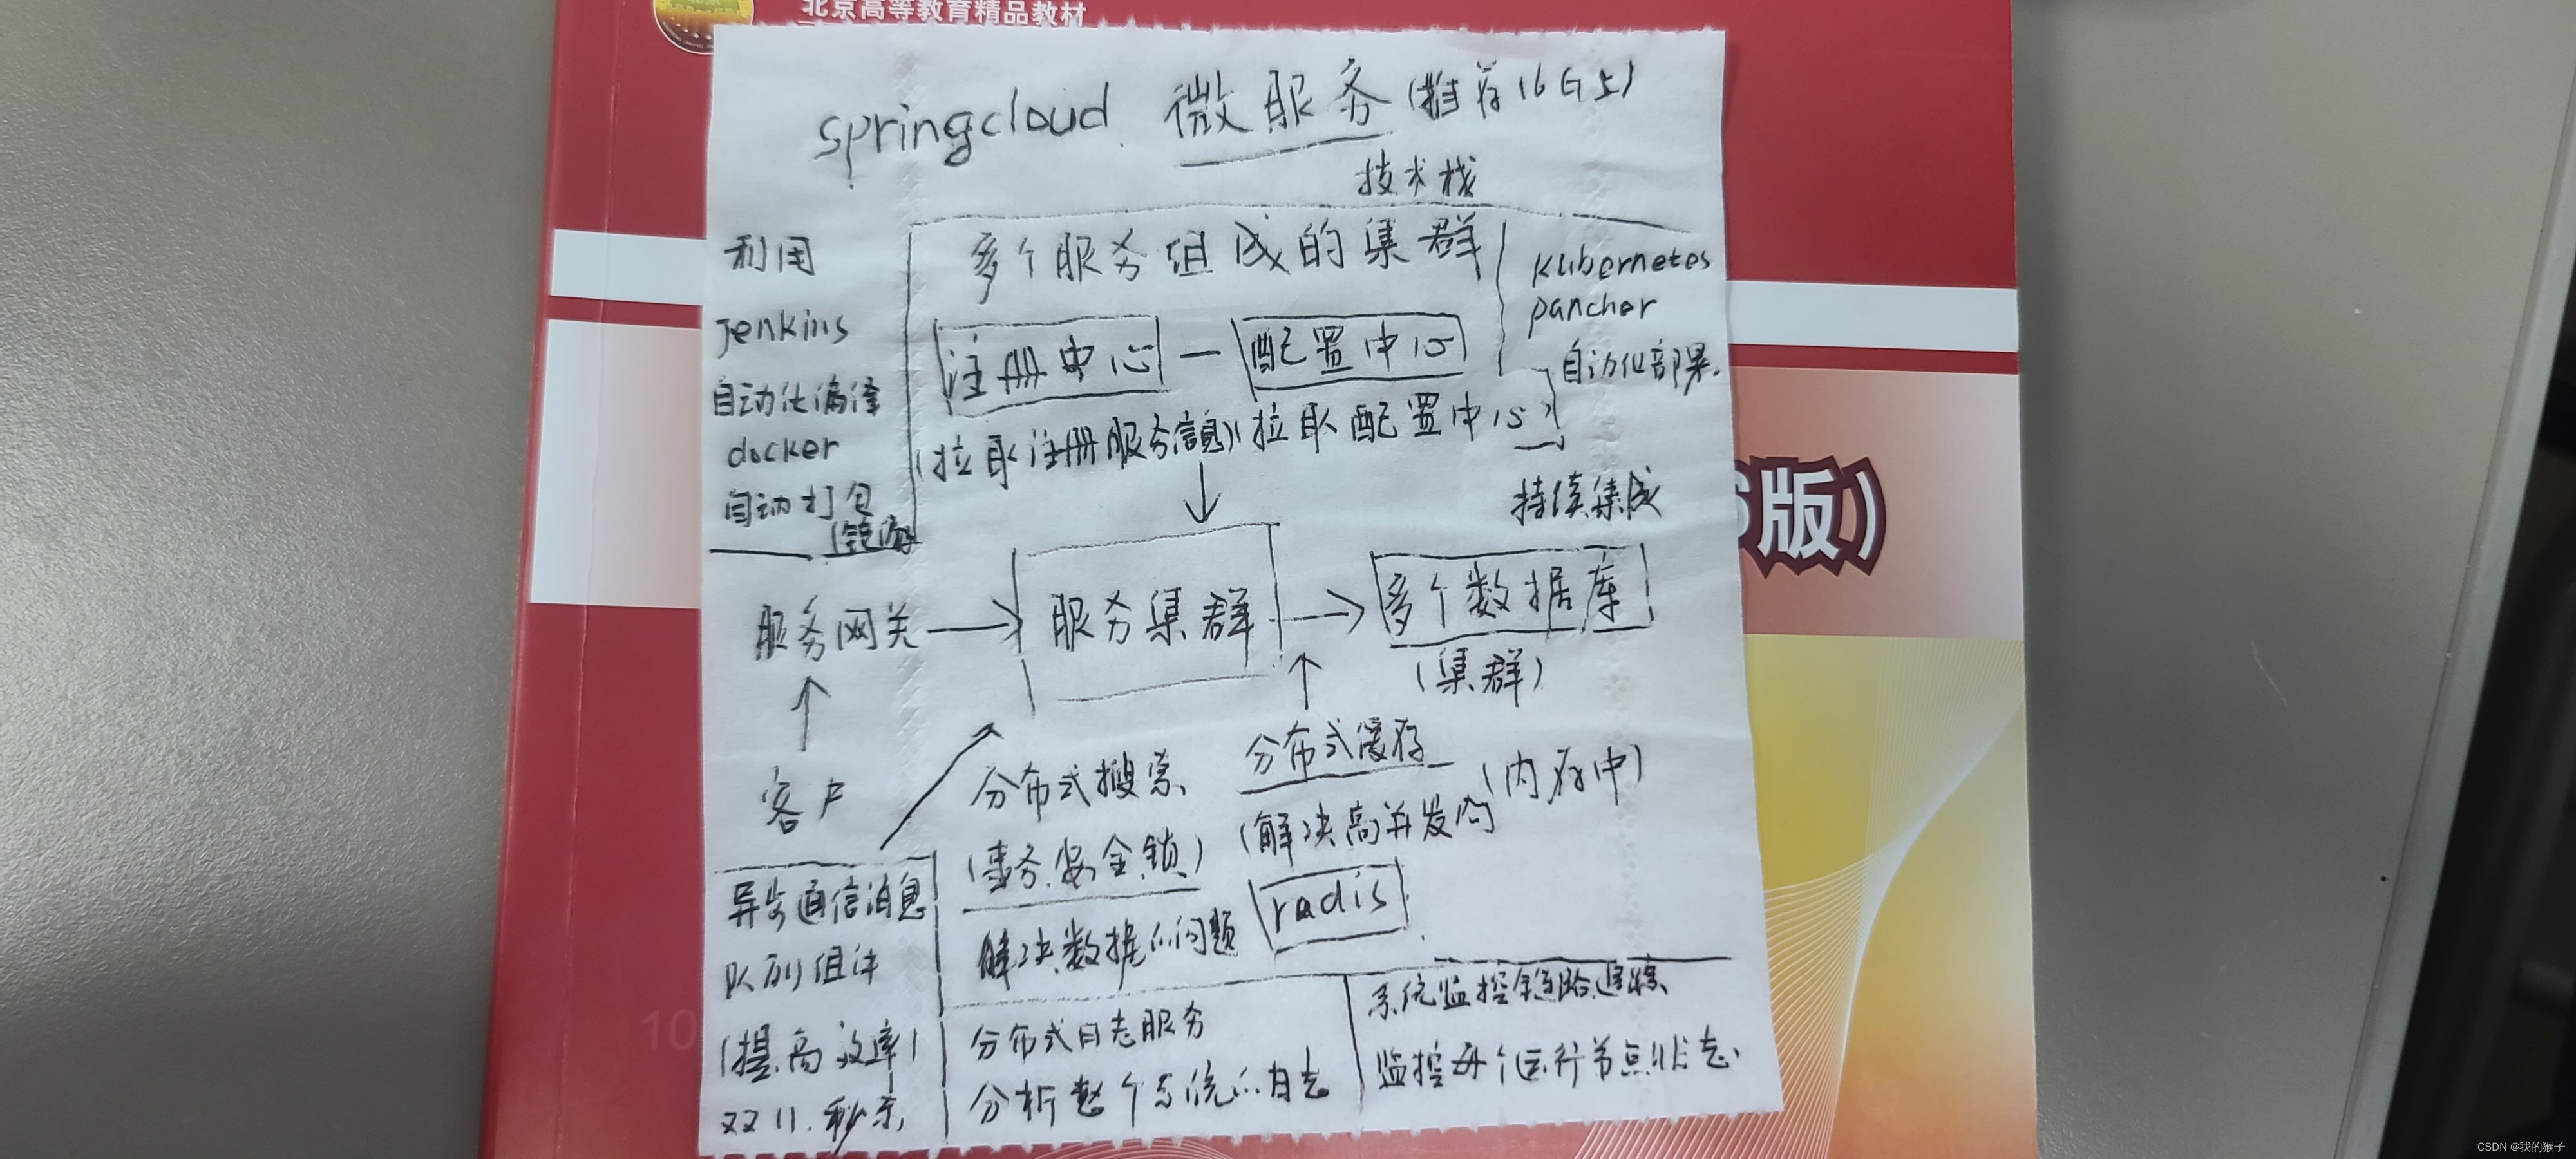 北京高等教育精品教材
springcloud 微服务 (推荐16G上)
技术栈
利用
Jenkins
自动化编译
docker
自动打包
(镜像)
多个服务组成的集群
注册中心 — 配置中心
(拉取注册服务信息) (拉取配置中心)
kubernetes
pancher
自动化部署.
持续集成
6版)
服务网关
服务集群
多个数据库
(集群)
客户
分布式搜索
(事务.安全.锁)
解决数据的问题
分布式缓存
(内存中)
(解决高并发的
radis
异步通信消息
队列组件
(提高效率)
双11.秒杀
分布式日志服务
分析整个系统的日志
系统监控链路追踪
监控每个运行节点状态
10
CSDN @我的猴子